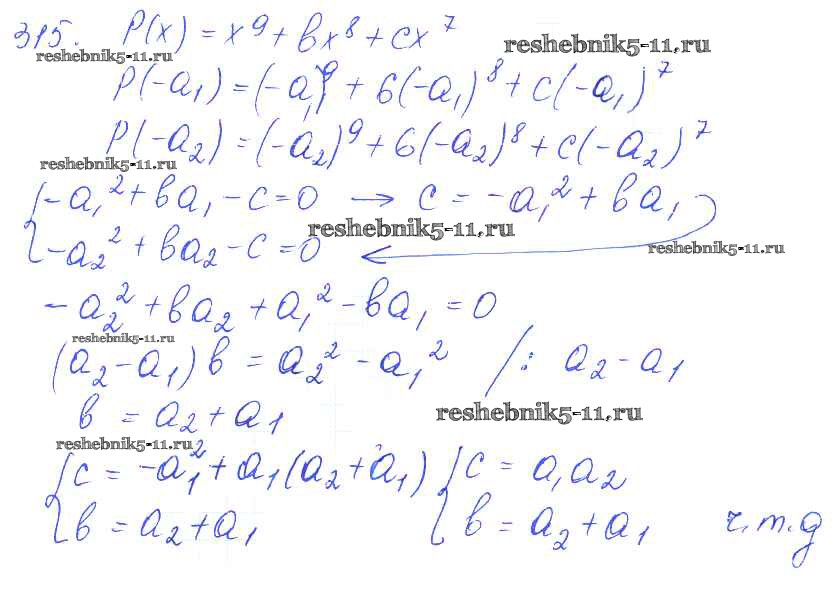 315. P(x) = x⁹ + bx⁸ + cx⁷
reshebnik5-11.ru reshebnik5-11.ru
P(-a₁) = (-a₁)⁹ + b(-a₁)⁸ + c(-a₁)⁷
P(-a₂) = (-a₂)⁹ + b(-a₂)⁸ + c(-a₂)⁷
reshebnik5-11.ru
{ -a₁² + ba₁ - c = 0 → c = -a₁² + ba₁
reshebnik5-11.ru
{ -a₂² + ba₂ - c = 0 ←
reshebnik5-11.ru
-a₂² + ba₂ + a₁² - ba₁ = 0
reshebnik5-11.ru
(a₂ - a₁) b = a₂² - a₁² /: a₂ - a₁
b = a₂ + a₁
reshebnik5-11.ru
reshebnik5-11.ru
{ c = -a₁² + a₁(a₂ + a₁) { c = a₁a₂
{ b = a₂ + a₁ { b = a₂ + a₁ ч.т.д